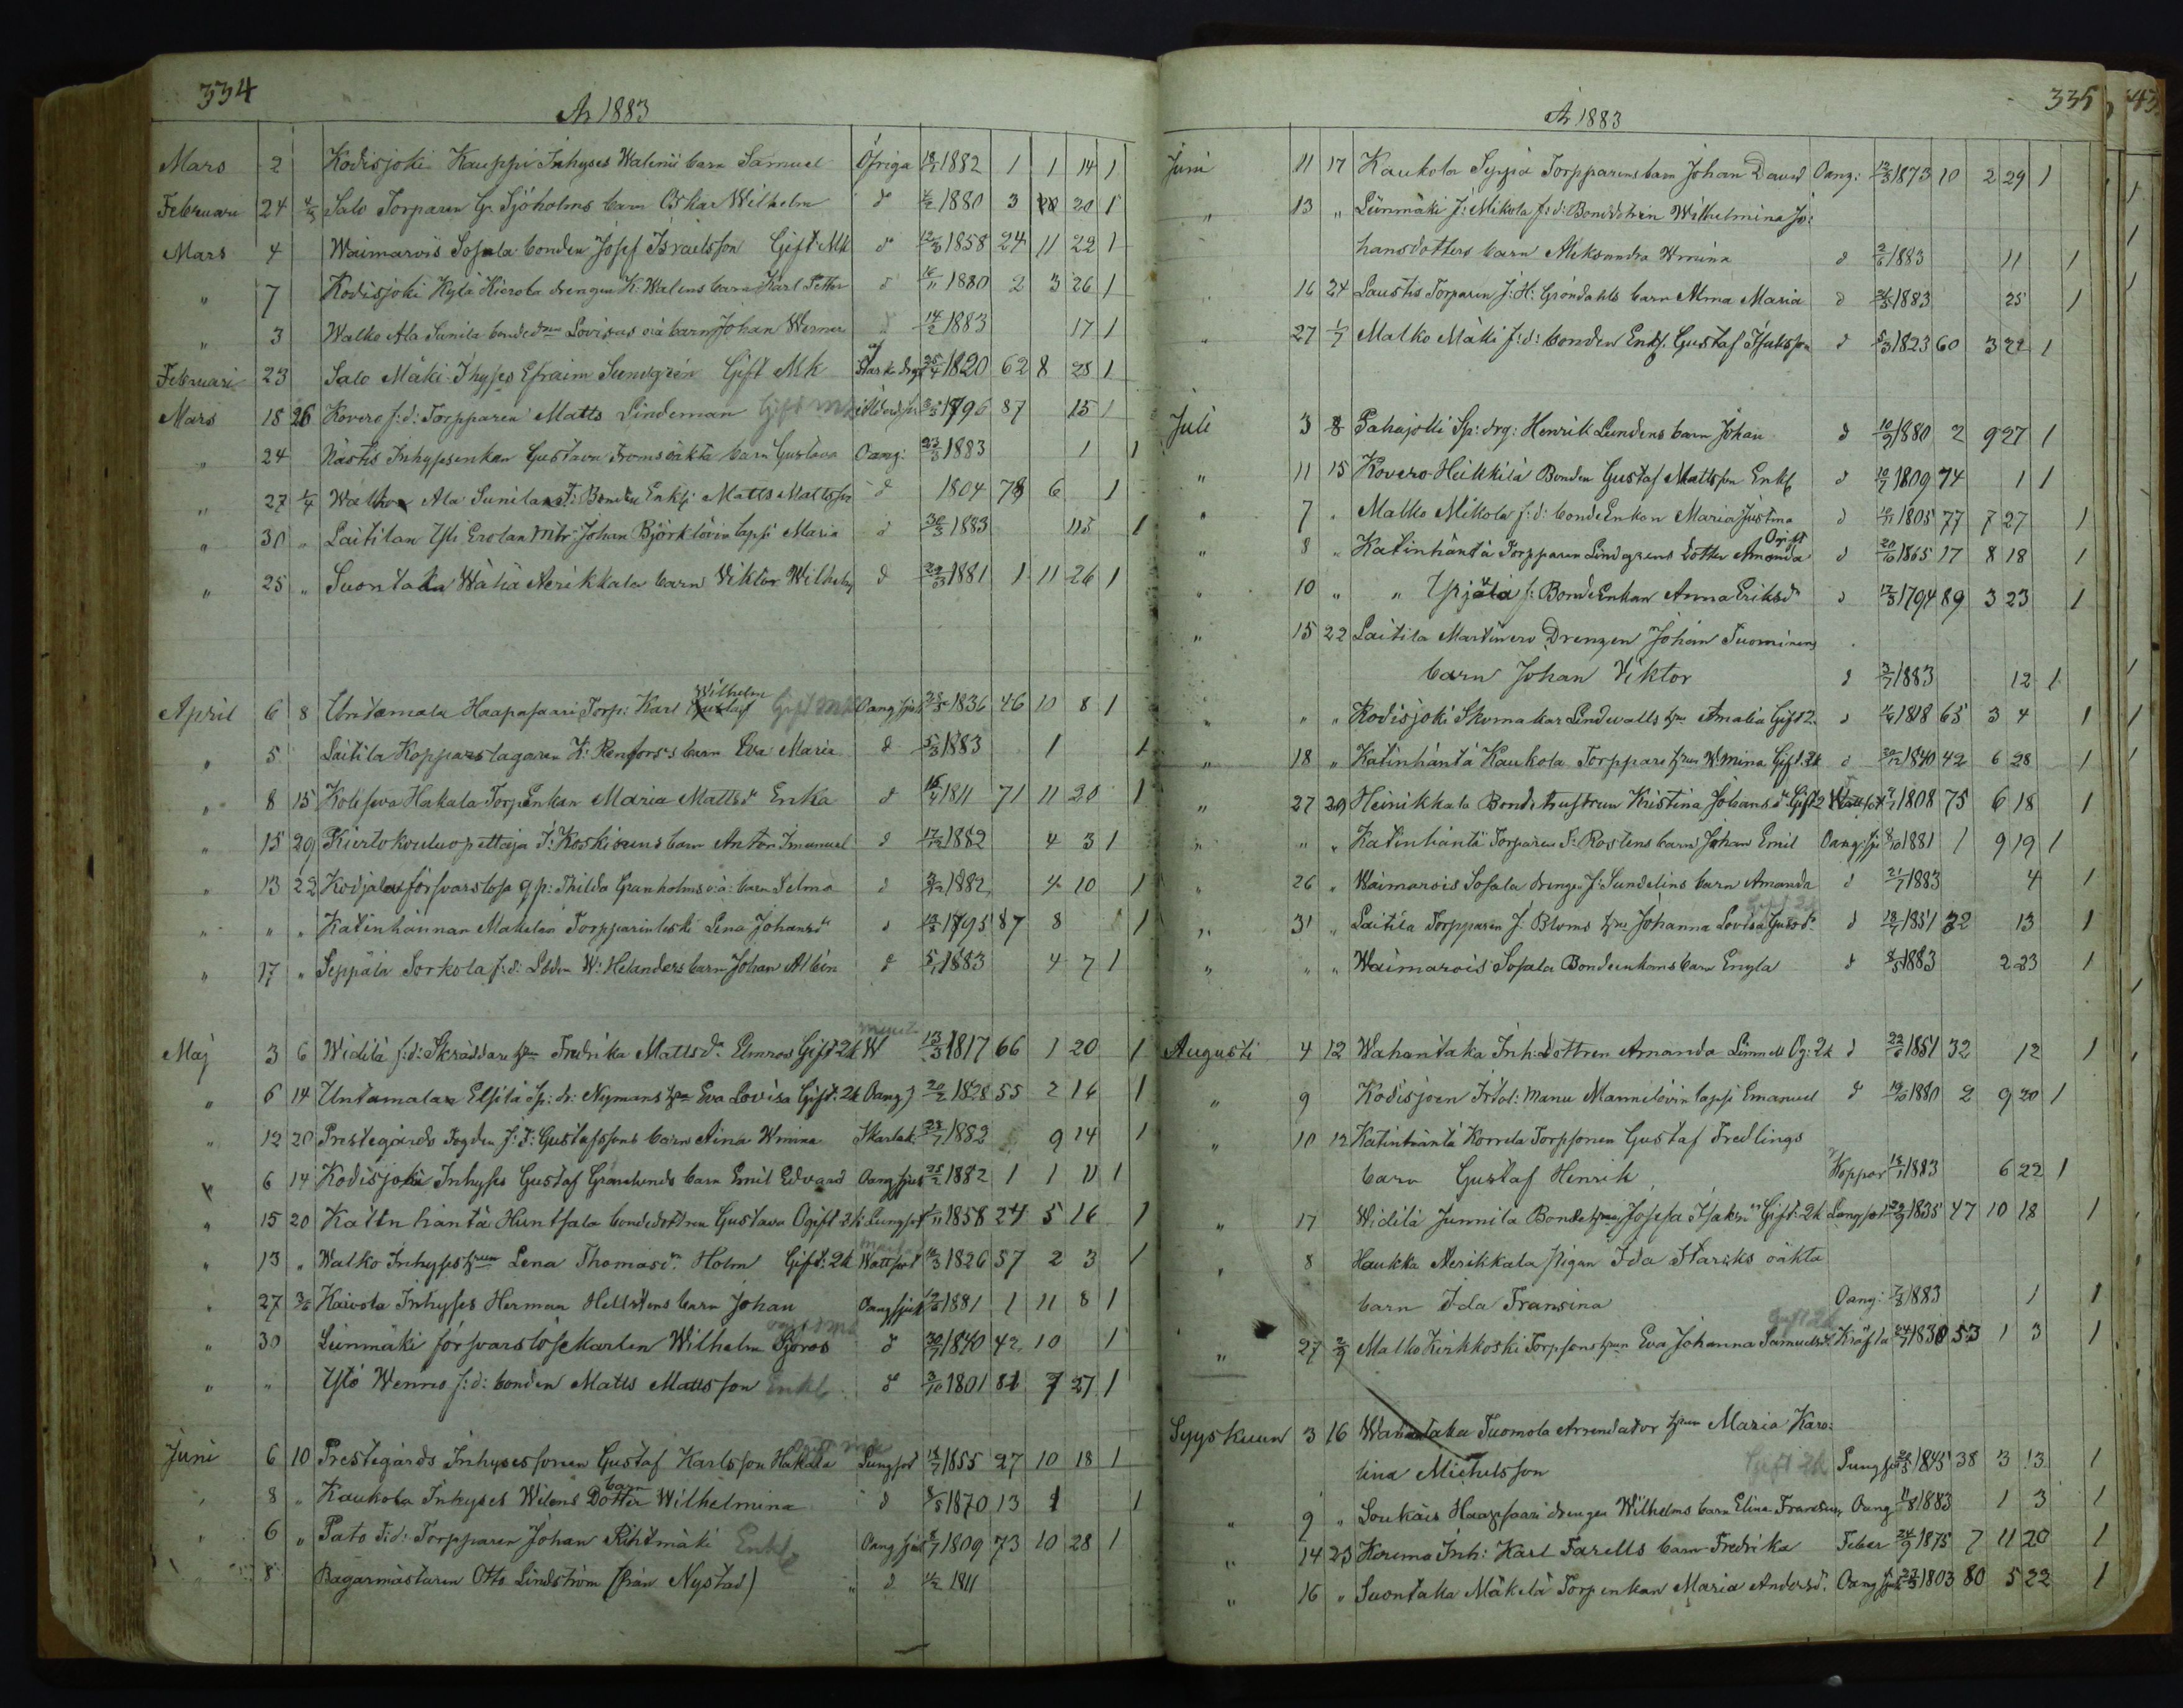 334
År 1883
Mars 2 Kodisjoki Kauppi Inhyses Walenii barn Samuel Öfriga 18/1 1882 1 1 14 1
Februari 24 4/3 Salo Torparen G. Sjöholms barn Oskar Wilhelm d 4/2 1880 3 20 1
Mars 4 Waimarois Sofala bonden Josef Israelsson Gift Mk d 12/3 1858 24 11 22 1
" 7 Kodisjoki Kylä Hierola drengen K. Walens barn Karl Petter d 11 1880 2 3 26 1
" 3 Walko Ala Sunila bonded Lovisas oä barn Johan Werner d 14/2 1883 17 1
Februari 23 Salo Mäki Ihyses Efraim Sundgrén Gift Mk 25/4 1820 62 8 28 1
Mars 18 26 Kovero f:d: Torpparen Matts Lindeman Gift 3/3 1796 87 15 1
" 24 Nästis Inhysenkan Gustava Fromsoäkta barn Gustava Oang: 23/3 1883 1 1
" 27 1/4 Walko Ala Sunilan F: Bonden Enkl: Matts Mattss: d 1804 78 6 1
" 30 " Laitilan Yli Erolan Johan Björklövin lapsi Maria d 1883 1
" 25 " Suontaka Wähä Aerikkala barn Viktor Wilhelm d 29/3 1881 1 11 26 1
April 6 8 Untamala Haapasaari Torp: Karl Wilhelm Gift Oang sjuk 28/5 1836 46 10 8 1
" 5 Laitila Kopparslagaren K: Renfors's barn Eva Maria d 5/3 1883 1 1
" 8 15 Kolisewa Hakala TorpEnkan Maria Mattsdr Enka d 18/4 1811 71 11 20 1
" 15 29 Kiertokouluopettaja F: Koskisens barn Anton Imanuel d 17/12 1882 4 3 1
" 13 22 Kodjala försvarslösa qp: Thilda Granholms oä: barn Selma d 3/12 1882 4 10 1
" " " Katinhännan Makelan Torpparinleski Lena Johansdr d 1795 87 8 1
" 17 " Seppälä Sorkola f:d: Lbden W: Helanders barn Johan Albin d 1883 4 7 1
Maj 3 6 Widilä f:d: Skräddare hn Fredrika Mattsdr Elmros Gift 2k W 13/3 1817 66 1 20 1
" 6 14 Untamalan Elsilä Sp: dr: Nymans hn Eva Lovisa Gift: 2k Oang 20/2 1828 55 2 16 1
" 12 20 Prestegårds Fogden J: F: Gustafssons barn Aina Wmina Skarlak: 28/7 1882 9 14 1
" 6 14 Kodisjoki Inhyses Gustaf Granlunds barn Emil Edvard Oang sjuk 25/2 1882 1 1 11 1
" 15 20 Katinhäntä Huntsala bondedottren Gustava Ogift 2k Lungsot 11 1858 24 5 16 1
" 13 " Walko Inhyses hrun Lena Thomasdr Holm Gift: 2k Wattsot 10/3 1826 57 2 3 1
" 27 3/6 Kaivola Inhyses Herman Hellstens barn Johan Oang sjuk 1881 1 11 8 1
" 30 Liinmäki försvarslöse karlen Wilhelm Sjöros d 30/7 1840 42 10 1
" " Ylö Wenno f:d: bonden Matts Mattsson Enkl d 3/10 1801 81 7 27 1
Juni 6 10 Prestegårds Inhysessonen Gustaf Karlsson Hakala Lungsot 18/7 1855 27 10 18 1
" 8 " Kaukola Inhyses Wilens barn Dotter Wilhelmina d 8/5 1870 13 1 1
" 6 " Pato F:d: Torpparen Johan Rihtmäki Enkl Oang sjuk 8/7 1809 73 10 28 1
" 8 Bagarmästaren Otto Lindström (från Nystad) " d 1811
335
År 1883
Juni 11 17 Kaukola Seppä Torpparens barn Johan David Oang: 12/3 1873 10 2 29 1
" 13 " Liinmäki J: Mikola f:d: Bondehustrun Wilhelmina Jo:
hansdotters barn Aleksandra Wmina d 2/6 1883 11 1
" 16 24 Laustis Torparen J: H: Gröndahls barn Alma Maria d 1883 25 1
" 27 1/7 Malko Mäki f:d: bonden Enkl. Gustaf Isaksson d 5/3 1823 60 3 22 1
Juli 3 8 Pahojoki Sp: drg: Henrik Lundens barn Johan d 10/9 1880 2 9 27 1
" 11 15 Kovero Heikkilä Bonden Gustaf Mattsson Enkl d 10/7 1809 74 1 1
" 7 " Malko Mikola f:d: bondeEnkan Maria Justina d 1805 77 7 27 1
" 8 " Katinhäntä Torpparen Lindgrens dotter Amanda Ogift d 20/10 1865 17 8 18 1
" 10 " " f: BondeEnkan Anna Eriksdr d 17/3 1794 89 3 23 1
" 15 22 Laitila Martinero Drengen Johan Tuominens
barn Johan Viktor d 3/7 1883 12 1
" " " Kodisjoki Skomakar Lindwalls hn Amalia Gift 2 d 1818 65 3 4 1
" 18 " Katinhäntä Kaukola Torppare hrun Wmina Gift. 2k d 20/12 1840 42 6 28 1
" 27 29 Heinikkala Bondehustrun Kristina Johansdr Gift 2 Wattsot 9/1 1808 75 6 18 1
" " " Katinhäntä Torparen F: Rostens barn Johan Emil Oang: sj 8/10 1881 1 9 19 1
" 26 " Waimarois Sofala drengen J: Sundelins barn Amanda d 21/7 1883 4 1
" 31 " Laitila Torpparen J. Bloms hrn Johanna Lovisa Gustsd: d 18/7 1851 32 13 1
" " " Waimarois Sofala Bondeenkans barn Engla d 8/5 1883 2 23 1
Augusti 4 12 Wahantaka Inh: dottren Amanda Linnell Og: 2k d 22/6 1851 32 12 1
" 9 Kodisjoen Itsl: Manu Mannilövin lapsi Emanuel d 19/10 1880 2 9 20 1
" 10 12 Katinhäntä Korrela Torpsonen Gustaf Fredlings
barn Gustaf Henrik Koppor 18/1 1883 6 22 1
" 17 Widilä Junnila Bonde hrun Josefa Isaksdr Gift: 2k Lungsot 29/9 1835 47 10 18 1
" 8 Haukka Aerikkala pigan Ida Starcks oäkta
barn Ida Fransina Oang: 7/8 1883 1 1
" 27 2/9 Malko Kirkkoski Torpsons hrun Eva Johanna Samuelsd: Gift 2k Kräfta 24/7 1830 53 1 3 1
Syyskuun 3 16 Wahantaka Tuomola Arrendator hrun Maria Karo:
lina Michelsson Gift 2k Lungsot 20/5 1845 38 3 13 1
" 9 " Soukais Haapasaari drengen Wilhelms barn Elina Fransina Oang 11/8 1883 1 3 1
" 14 23 Korema Inh: Karl Farells barn Fredrika Feber 24/9 1875 7 11 20 1
" 16 " Suontaka Mäkelä Torpenkan Maria Andersd. Oang sjuk 27/3 1803 80 5 22 1